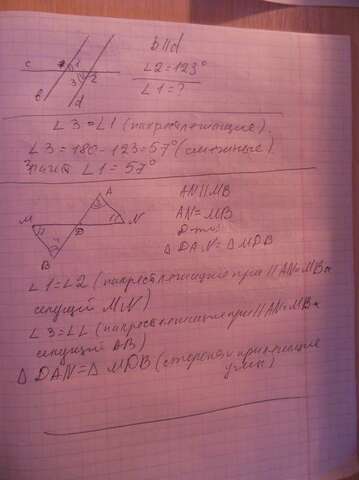 c
1
3 2
b
d
b||d
∠2=123°
∠1=?
∠3=∠1 (накрест лежащие).
∠3=180-123=57° (смежные).
значит ∠1=57°
A
M
N
D
B
AN||MB
AN=MB
D-ть:
△DAN=△MDB
∠1=∠2 (накрест лежащие при || AN и MB и
секущей MN)
∠3=∠4 (накрест лежащие при || AN и MB и
секущей AB)
△DAN=△MDB (сторона и прилежащие
углы)